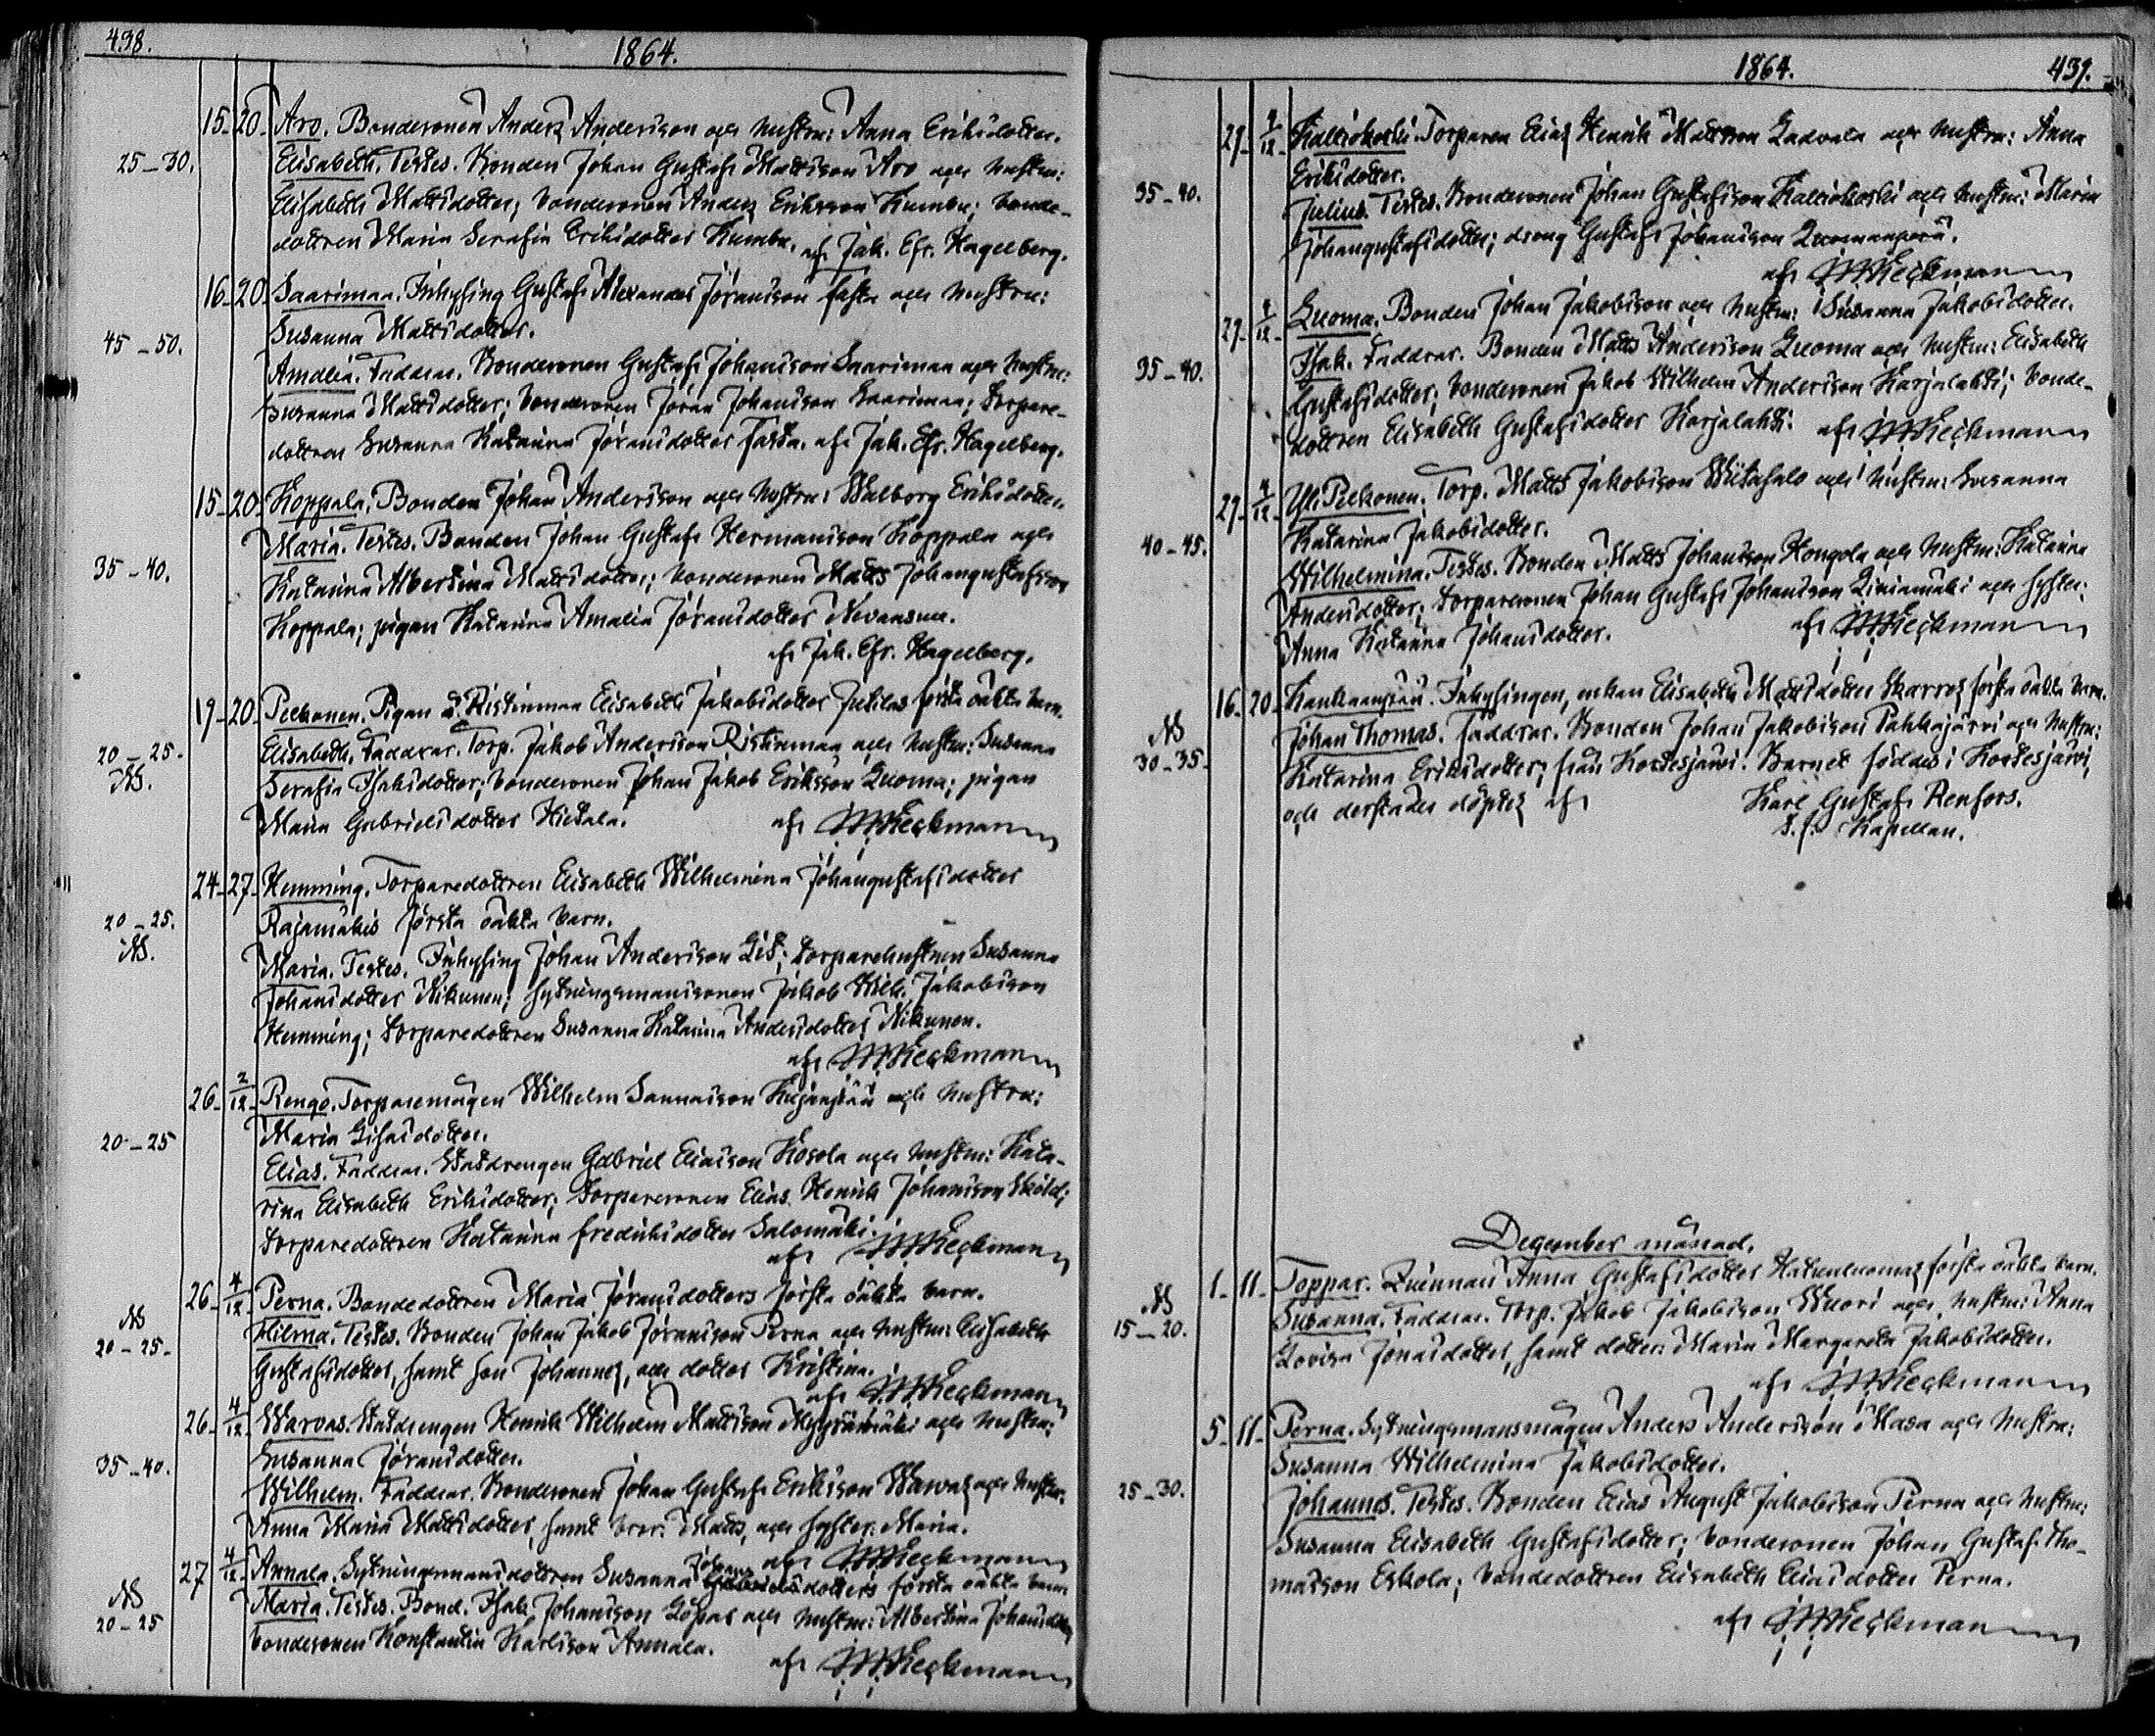 438.
1864.
15. 20. Aro. Bondesonen Anders Andersson och hustru: Anna Eriksdotter.
25–30. Elisabeth. Testes. Bonden Johan Gustaf Mattsson Aro och hustru:
Elisabeth Mattsdotter; bondesonen Anders Eriksson Kumbu; bonde-
dottren Maria Serafia Eriksdotter Kumbu. af Jak. Efr. Hagelberg.
16. 20. Saarimaa. Inhysing Gustaf Alexander Jöransson Fasta och hustru:
45–50. Susanna Mattsdotter.
Amalia. Faddrar. Bondesonen Gustaf Johansson Saarimaa och hustru:
Susanna Mattsdotter; bondesonen Jöran Johansson Saarimaa; torpare-
dottren Susanna Katarina Jöransdotter Fasta. af Jak. Efr. Hagelberg.
15. 20. Koppala. Bonden Johan Andersson och hustru: Walborg Eriksdotter.
Maria. Testes. Bonden Johan Gustaf Hermansson Koppala och
35–40. Katarina Albertina Mattsdotter; bondesonen Matts Johangustafsson
Koppala; pigan Katarina Amalia Jöransdotter Nevansuu.
af Jak. Efr. Hagelberg.
19. 20. Pelkonen. Pigan å Ristinmaa Elisabeth Jakobsdotter Jutilas första oäkta barn.
20–25. Elisabeth. Faddrar. Torp. Jakob Andersson Ristinmaa och hustru: Susanna
NB. Serafia Isaksdotter; bondesonen Johan Jakob Eriksson Luoma; pigan
Maria Gabrielsdotter Hietala. af J.W. Heikman
24. 27. Hemming. Torparedottren Elisabeth Wilhelmina Johangustafsdotter
20–25. Rajamäkis första oäkta barn.
NB. Maria. Testes. Inhysing Johan Andersson Gis; torparehustrun Susanna
Johansdotter Nikunen; sytningsmanssonen Jakob Wilh. Jakobsson
Hemming; torparedottren Susanna Katarina Andersdotter Nikunen.
af J.W. Heikman
26. 2/12. Rengo. Torparemågen Wilhelm Sannasson Kujanpää och hustru:
20–25 Maria Gisasdotter.
Elias. Faddrar. Statdrengen Gabriel Eliasson Kosola och hustru: Kata-
rina Elisabeth Eriksdotter; torparesonen Elias Henrik Johansson Sköld;
torparedottren Katarina Fredriksdotter Salomäki.
af J.W. Heikman
26. 4/12. Perna. Bondedottren Maria Jöransdotters första oäkta barn.
NB Hilma. Testes. Bonden Johan Jakob Jöransson Perna och hustru: Elisabeth
20–25. Gustafsdotter, samt son Johannes, och dotter Kristina.
af J.W. Heikman
26. 4/12. Warvas. Statdrengen Henrik Wilhelm Mattsson Myyrämäki och hustru:
35–40. Susanna Jöransdotter.
Wilhelm. Faddrar. Bondesonen Johan Gustaf Eriksson Warvas och hustru:
Anna Maria Mattsdotter, samt bror: Matts, och syster: Maria.
af J.W. Heikman
27 4/12. Annala. Sytningsmansdottren Susanna Johans dotters första oäkta barn
NB Maria. Testes. Bond. Isak Johansson Gopas och hustru: Albertina Johansdotter
20–25 bondesonen Konstantin Karlsson Annala.
af J.W. Heikman
1864. 439.
29. 4/12. Kalliokoski. Torparen Elias Henrik Mattsson Ladvala och hustru: Anna
Eriksdotter.
35–40. Julius. Testes. Bondesonen Johan Gustafsson Kalliokoski och hustru: Maria
Johangustafsdotter; dreng Gustaf Johansson Luomanperä.
af J.W. Heikman
29. 4/12. Luoma. Bonden Johan Jakobsson och hustru: Susanna Jakobsdotter.
35–40. Isak. Faddrar. Bonden Matts Andersson Luoma och hustru: Elisabeth
Gustafsdotter; bondesonen Jakob Wilhelm Andersson Karjalahti; bonde-
dottren Elisabeth Gustafsdotter Karjalahti. af J.W. Heikman
29. 4/12. Yli Pelkonen. Torp. Matts Jakobsson Wiitasalo och hustru: Susanna
40–45. Katarina Jakobsdotter.
Wilhelmina. Testes. Bonden Matts Johansson Hongola och hustru: Katarina
Andersdotter; torparesonen Johan Gustaf Johansson Liviamäki och syster:
Anna Katarina Johansdotter. af J.W. Heikman
16. 20. Kankaanpää. Inhysingen, enkan Elisabeth Mattsdotter Skarres första oäkta barn.
NB Johan Thomas. Faddrar. Bonden Johan Jakobsson Pahkajärvi och hustru:
30–35. Katarina Eriksdotter; från Kortesjärvi. Barnet föddes i Kortesjärvi,
och derstädes döptes af Karl Gustaf Renfors.
t. f. Kapellan.
December månad.
1. 11. Toppar. Qvinnan Anna Gustafsdotter Hakunluomas första oäkta barn.
NB Susanna. Faddrar. Torp. Jakob Jakobsson Wuori och hustru: Anna
15–20. Lovisa Jonasdotter, samt dotter: Maria Margareta Jakobsdotter.
af J.W. Heikman
5. 11. Perna. Sytningsmansmågen Anders Andersson Masa och hustru:
Susanna Wilhelmina Jakobsdotter.
25–30. Johannes. Testes. Bonden Elias August Jakobsson Perna och hustru:
Susanna Elisabeth Gustafsdotter; bondesonen Johan Gustaf Tho-
masson Eskola; bondedottren Elisabeth Eliasdotter Perna.
af J.W. Heikman